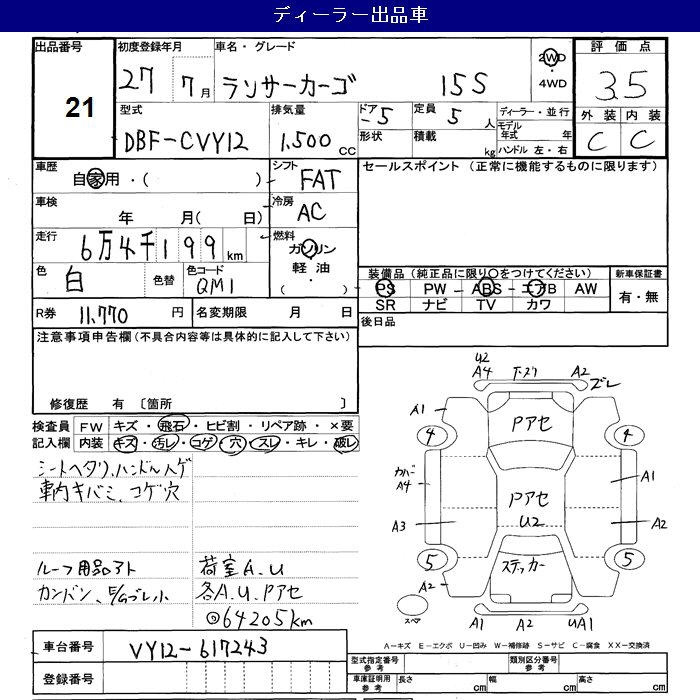 ディーラー出品車
出品番号 21
初度登録年月 27 7月
車名・グレード ランサーカーゴ 15S
2WD ・ 4WD
評価点 3.5
外装 C 内装 C
型式 DBF-CVY12
排気量 1.500 cc
ドア -5
形状
定員 5人
積載 kg
ディーラー・並行
モデル年式 年
ハンドル 左・右
車歴 自家用・( )
シフト FAT
セールスポイント (正常に機能するものに限ります)
車検 年 月( 日)
冷房 AC
走行 6万4千199km
燃料 ガソリン 軽油・ ( )
色 白
色替
色コード QM1
装備品(純正品に限り○をつけてください)
PS PW ABS エアB AW
SR ナビ TV カワ
新車保証書 有・無
R券 11,770円
名変期限 月 日
後日品
注意事項申告欄(不具合内容等は具体的に記入して下さい)
修復歴 有 〔箇所 〕
検査員記入欄
FW キズ・飛石・ヒビ割・リペア跡・×要
内装 キズ・汚レ・コゲ・穴・スレ・キレ・破レ
シートヘタリ、ハンドルハゲ
車内キバミ、コゲ穴
ルーフ用品アト 荷室A.U
カンバン、 各A.U.Pアセ
◎64205km
車台番号 VY12-617243
登録番号
U2
A4 A2 ズレ
A1 Pアセ
4 4
カバー A4 A1
Pアセ
A3 U2 A2
5 ステッカー 5
A2
スペア A1 A2 UA1
A-キズ E-エクボ U-凹み W-補修跡 S-サビ C-腐食 XX-交換済
型式指定番号 参考 類別区分番号 参考
車庫証明用 参考 長さ cm 幅 cm 高さ cm